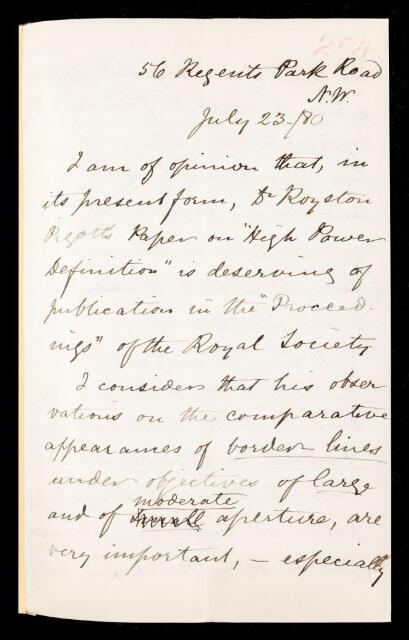 254
56 Regents Park Road
N.W.
July 23/80
I am of opinion that, in
its present form, Dr Royston
Pigott's Paper on "High Power
Definition" is deserving of
publication in the "Proceed-
ings" of the Royal Society.
I consider that his obser
vations on the comparative
appearances of border lines
under objectives of large
moderate
and of small aperture, are
very important, – especially